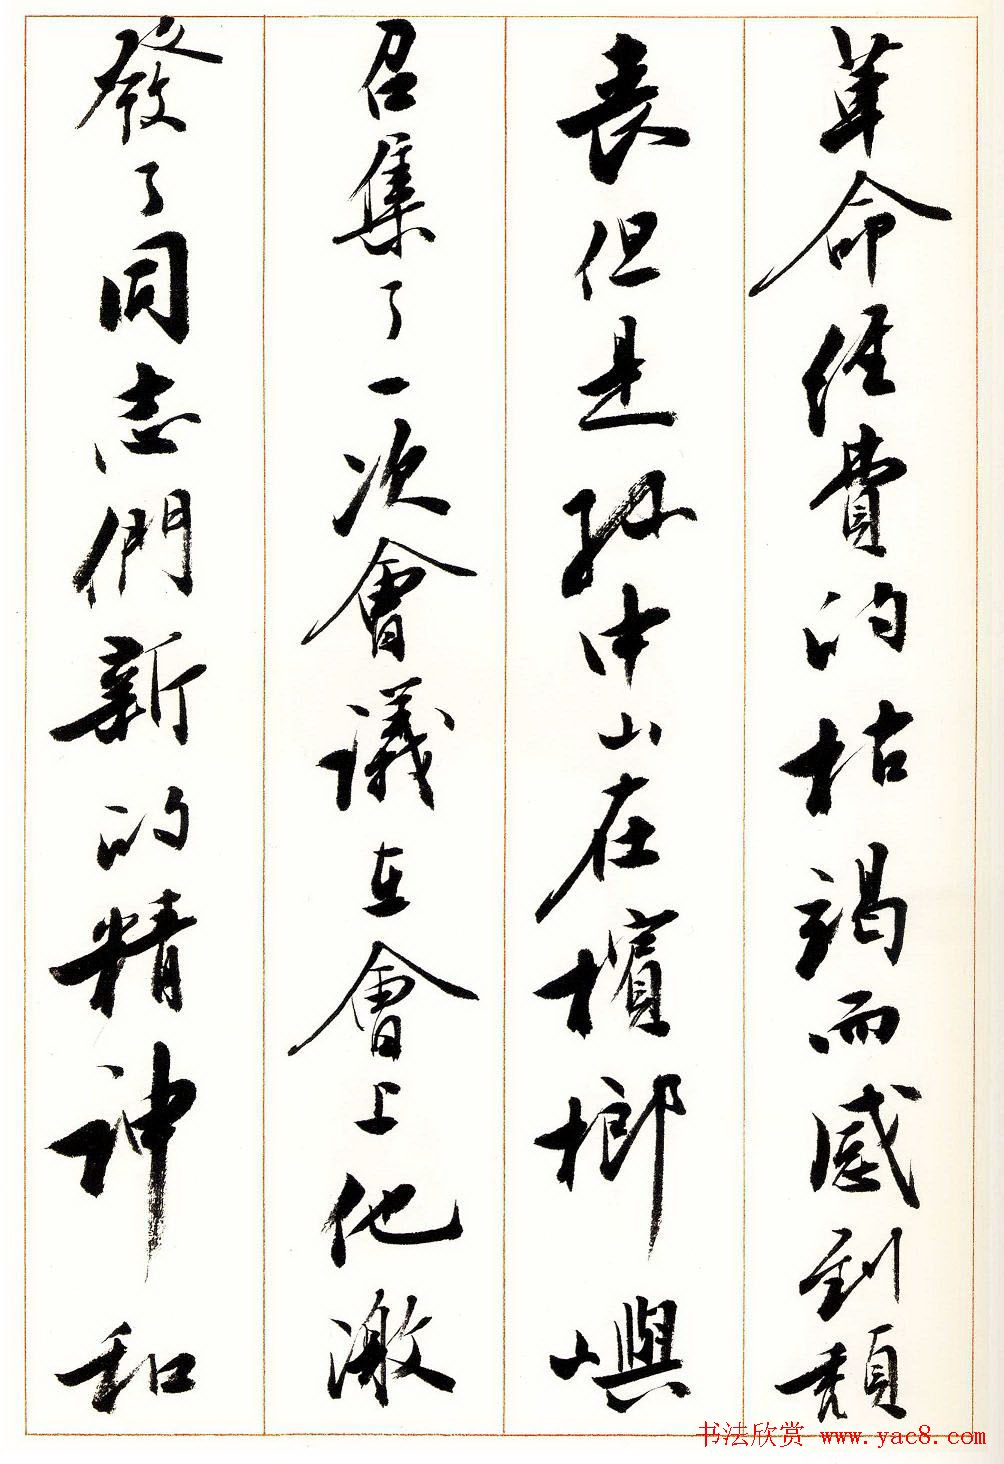 革命經費的枯竭而感到頹
喪但是孫中山在檳榔嶼
召集了一次會議在會上他激
發了同志們新的精神和
书法欣赏 www.yac8.com